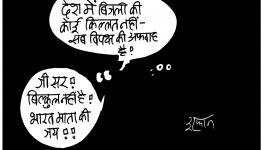 देश में बिजली की
कोई किल्लत नहीं-
सब विपक्ष की अफवाह
है?
जी सर?
बिल्कुल नहीं है?
भारत माता की
जय??
इरफान